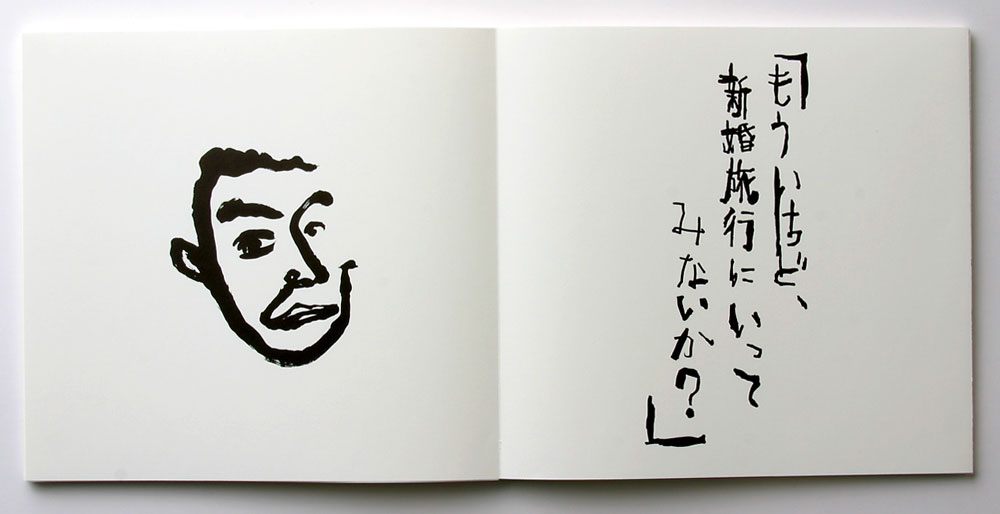 「もういちど、
新婚旅行にいって
みないか?」